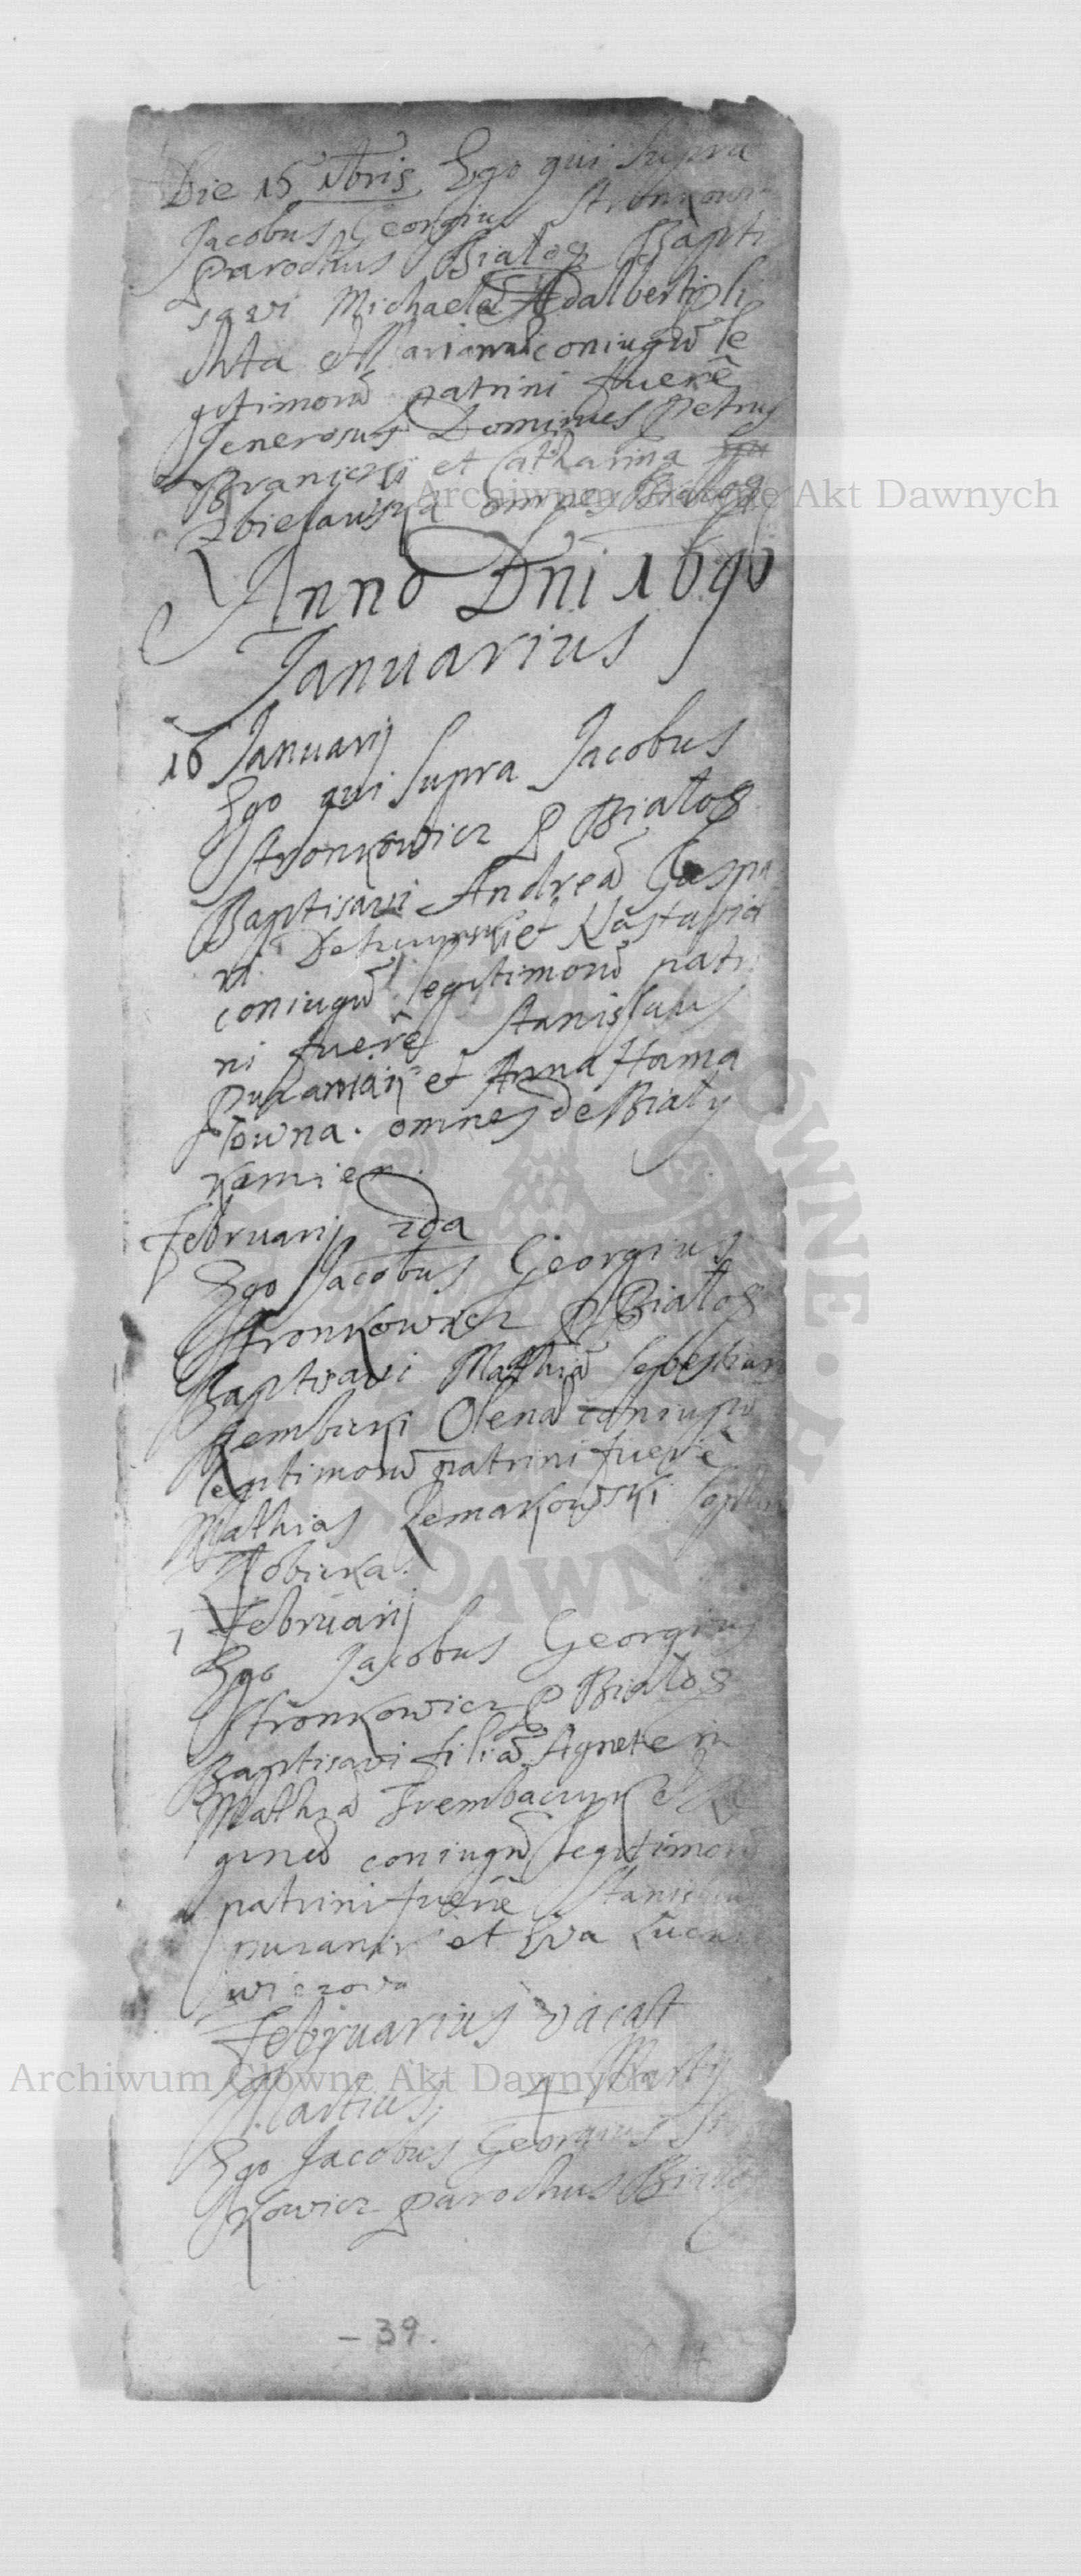 Die 15 Xbris Ego qui supra
Jacobus Georgius Stronkowi
Parochus Białog Bapti
savi Michaelẽ Adalberti
et Mariannã coniugũ le
gitimorũ patrini fuerẽ
Generosus Dominus Petrus
Branicki et Catharina
Zbielawska omnes Białog
Anno Dni 1690
Januarius
16 Januarij
Ego qui supra Jacobus
Stronkowicz P Białog
Baptisavi Andreã Gaspa
ri et Nastasia
coniugũ legitimorũ patri
ni fuerẽ Stanislaus
et Anna Homa
towna. omnes de Biały
Kamien.
Februarij 2da
Ego Jacobus Georgius
Stronkowicz P Białog
Baptisavi Mathiã Sebestian
Rembicki Olena coniugũ
legitimorũ patrini fuerẽ
Mathias
7 Februarij
Ego Jacobus Georgius
Stronkowicz P Białog
Baptisavi filiã Agnetem
Mathiã
ginẽ coniugũ legitimorũ
patrini fuerẽ Stanislaus
et Eva
wiczowa
Februarius vacat
Martius. 4 Martij
Ego Jacobus Georgius Stron
kowicz Parochus Białog
- 39.
Archiwum Główne Akt Dawnych
Archiwum Główne Akt Dawnych